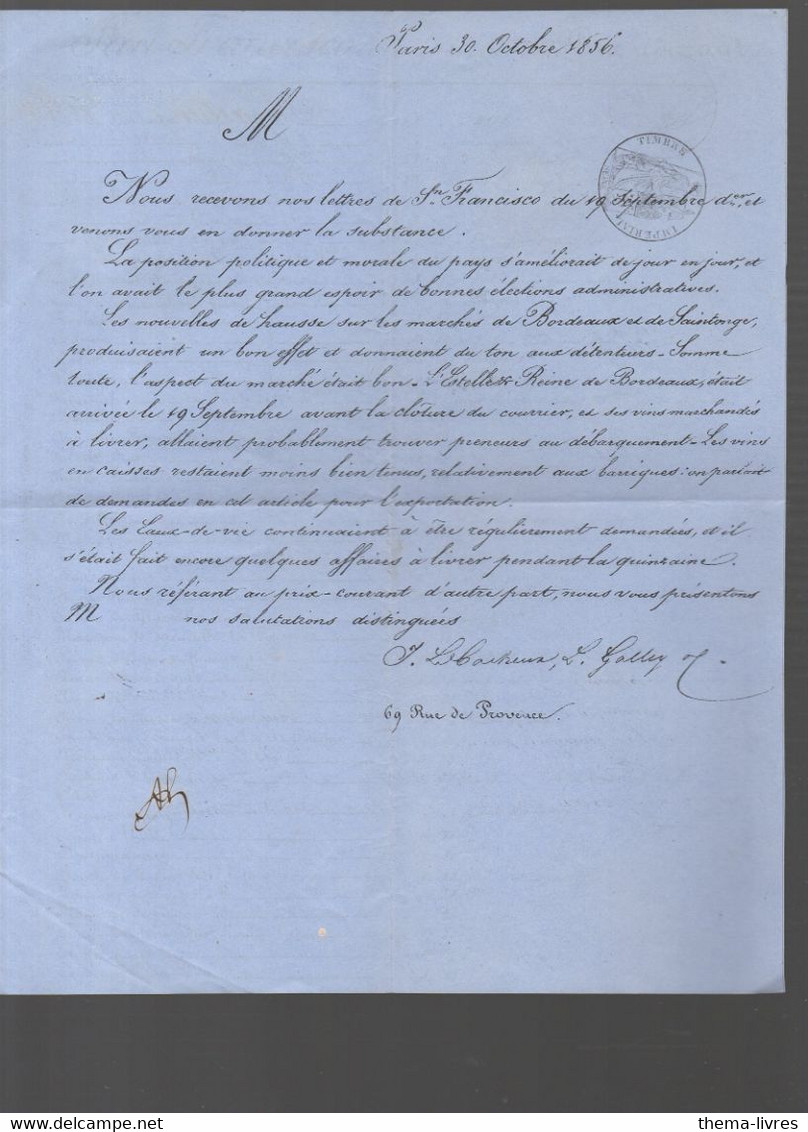 Paris 30. Octobre 1856.
M
TIMBRE
IMPERIAL
Nous recevons nos lettres de Sn. Francisco du 19 Septembre der, et
venons vous en donner la substance.
La position politique et morale du pays s'améliorait de jour en jour, et
l'on avait le plus grand espoir de bonnes élections administratives.
Les nouvelles de hausse sur les marchés de Bordeaux et de Saintonge,
produisaient un bon effet et donnaient du ton aux détenteurs - Somme
toute, l'aspect du marché était bon - L'Estelle & Reine de Bordeaux, était
arrivée le 19 Septembre avant la clôture du courrier, et ses vins marchandés
à livrer, allaient probablement trouver preneurs au débarquement - Les vins
en caisses restaient moins bien tenus, relativement aux barriques: on parlait
de demandes en cet article pour l'exportation.
Les Eaux-de-vie continuaient à être régulierement demandées, et il
s'était fait encore quelques affaires à livrer pendant la quinzaine.
Nous référant au prix-courant d'autre part, nous vous présentons
M nos salutations distinguées
69 Rue de Provence.
thema-livres